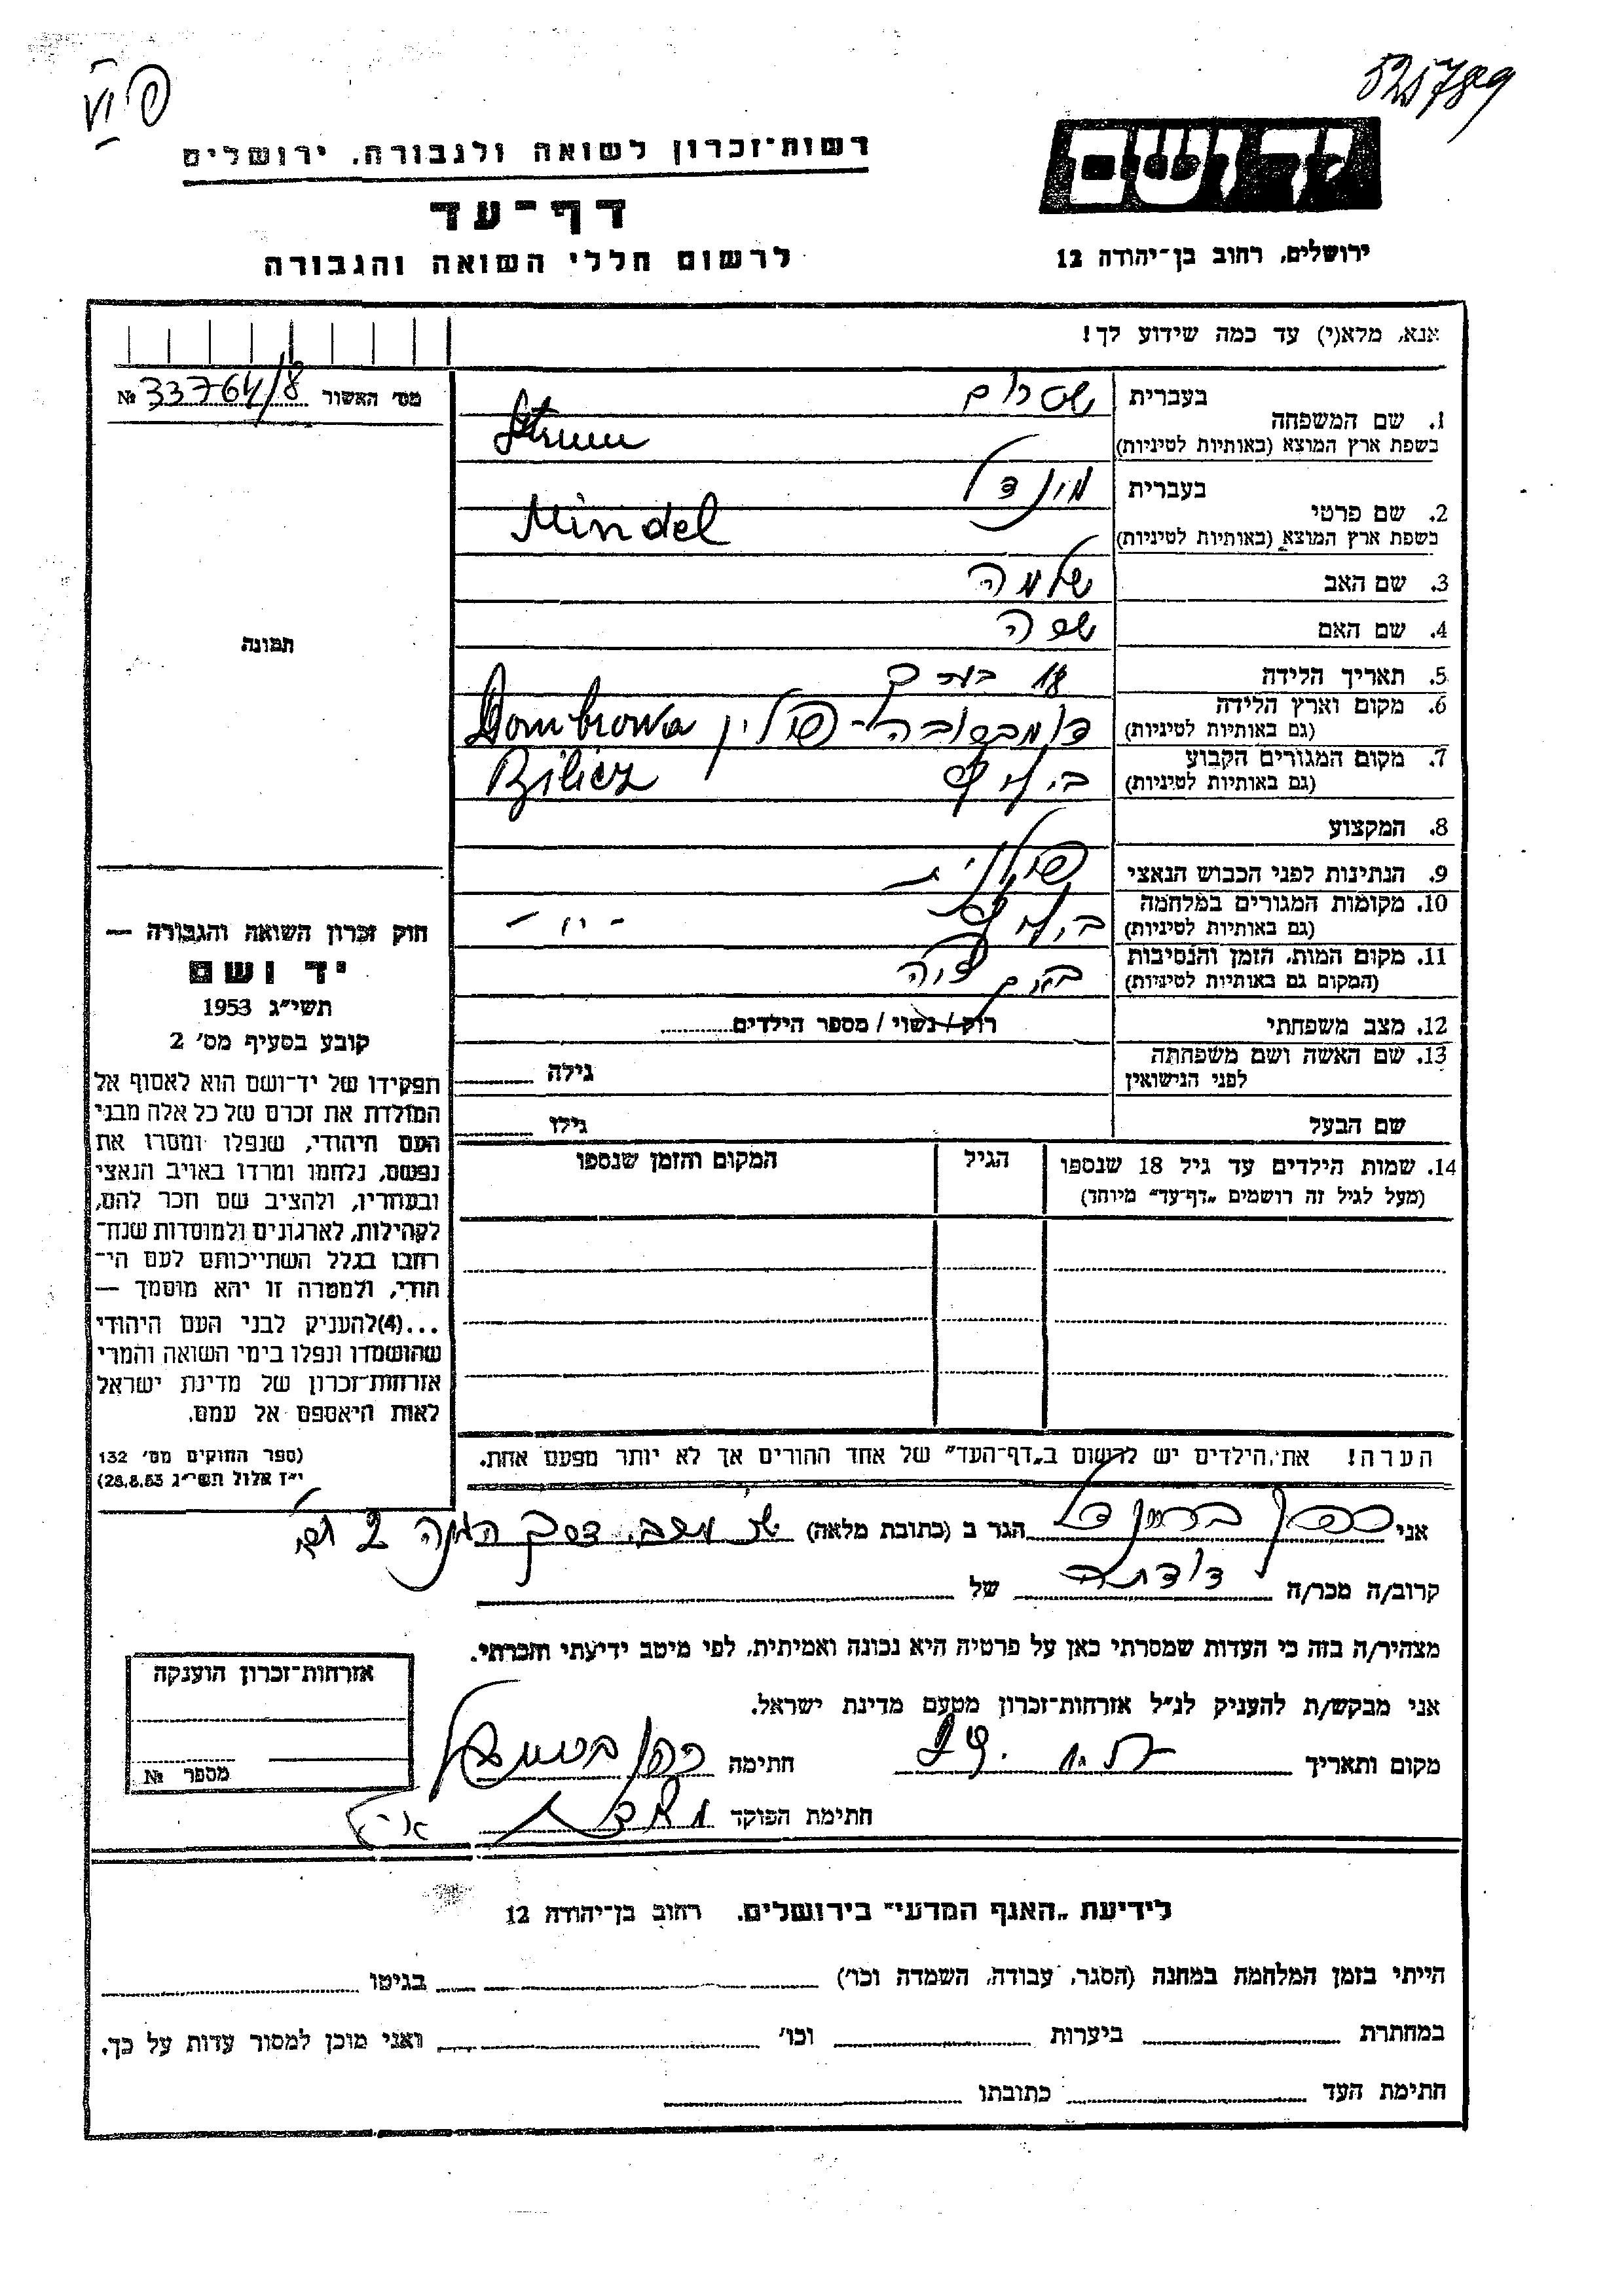 525789
רשות־זכרון לשואה ולגבורה, ירושלים
יד ושם
דף־עד
ירושלים, רחוב בן־יהודה 12
לרשום חללי השואה והגבורה
אנא, מלא(י) עד כמה שידוע לך!
מס׳ האשור № 33764/8
1. שם המשפחה
בעברית שטרום
בשפת ארץ המוצא (באותיות לטיניות) Strum
2. שם פרטי
בעברית מינדל
בשפת ארץ המוצא (באותיות לטיניות) Mindel
3. שם האב שלמה
4. שם האם
5. תאריך הלידה
6. מקום וארץ הלידה דומברובה - פולין Dombrowa
(גם באותיות לטיניות)
7. מקום המגורים הקבוע Bilicz
(גם באותיות לטיניות)
8. המקצוע
9. הנתינות לפני הכבוש הנאצי פולנית
10. מקומות המגורים במלחמה - " -
(גם באותיות לטיניות)
11. מקום המות, הזמן והנסיבות
(המקום גם באותיות לטיניות)
12. מצב משפחתי רווק / נשוי / מספר הילדים
13. שם האשה ושם משפחתה גילה
לפני הנישואין
שם הבעל גילו
14. שמות הילדים עד גיל 18 שנספו הגיל המקום והזמן שנספו
(מעל לגיל זה רושמים „דף־עד״ מיוחד)
הערה! את הילדים יש לרשום ב„דף־העד״ של אחד ההורים אך לא יותר מפעם אחת.
תמונה
חוק זכרון השואה והגבורה —
יד ושם
תשי״ג 1953
קובע בסעיף מס׳ 2
תפקידו של יד־ושם הוא לאסוף אל
המולדת את זכרם של כל אלה מבני
העם היהודי, שנפלו ומסרו את
נפשם, נלחמו ומרדו באויב הנאצי
ובעוזריו, ולהציב שם וזכר להם,
לקהילות, לארגונים ולמוסדות שנח־
רבו בגלל השתייכותם לעם הי־
הודי, ולמטרה זו יהא מוסמך —
...(4)להעניק לבני העם היהודי
שהושמדו ונפלו בימי השואה והמרי
אזרחות־זכרון של מדינת ישראל
לאות היאספם אל עמם.
(ספר החוקים מס׳ 132
י״ז אלול תשי״ג 28.8.53)
אני הגר ב (כתובת מלאה) דרך הגנה 2
קרוב/ה מכר/ה דודתה של
מצהיר/ה בזה כי העדות שמסרתי כאן על פרטיה היא נכונה ואמיתית, לפי מיטב ידיעתי והכרתי.
אני מבקש/ת להעניק לנ״ל אזרחות־זכרון מטעם מדינת ישראל.
מקום ותאריך חתימה
חתימת הפוקד
אזרחות־זכרון הוענקה
מספר №
לידיעת „האגף המדעי״ בירושלים, רחוב בן־יהודה 12
הייתי בזמן המלחמה במחנה (הסגר, עבודה, השמדה וכו׳) בגיטו
במחתרת ביערות וכו׳ ואני מוכן למסור עדות על כך.
חתימת העד כתובתו